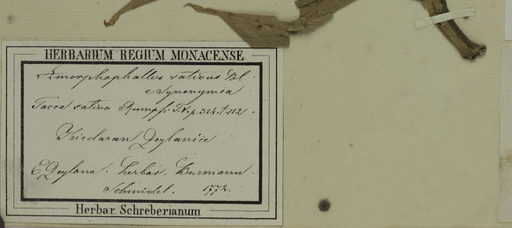 HERBARIUM REGIUM MONACENSE.
Amorphophallus sativus Bl.
e synonymia
Tacca sativa Rumpf. T.V. p. 324. t. 112.
Zeylanice
E Zeylona. herbar. Burmann.
Schmidel. 1772.
Herbar. Schreberianum